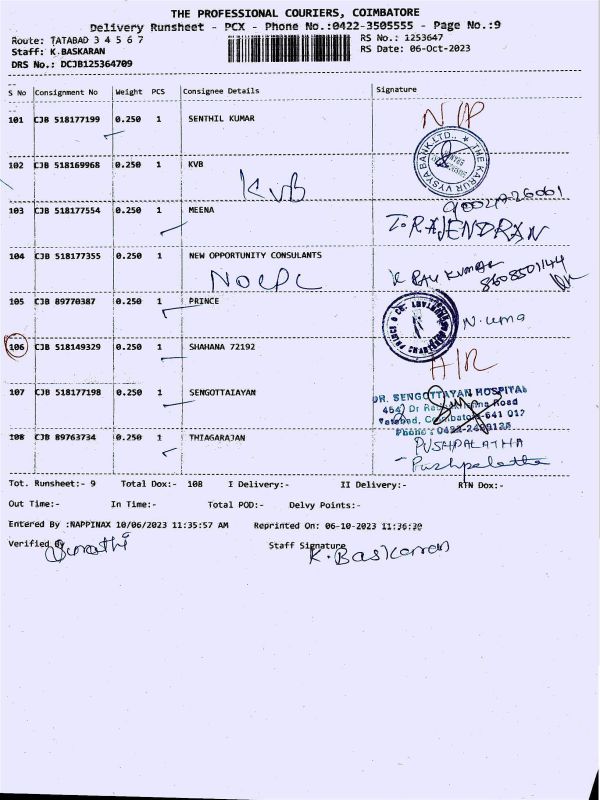 THE PROFESSIONAL COURIERS, COIMBATORE
Delivery Runsheet - PCX - Phone No.:0422-3505555 - Page No.:9
Route: TATABAD 3 4 5 6 7 RS No.: 1253647
Staff: K.BASKARAN RS Date: 06-Oct-2023
DRS No.: DCJB125364709
S No Consignment No Weight PCS Consignee Details Signature
101 CJB 518177199 0.250 1 SENTHIL KUMAR N/P
THE KARUR VYSYA BANK LTD.,
102 CJB 518169968 0.250 1 KVB
KVB
103 CJB 518177554 0.250 1 MEENA T.RAJENDRAN
104 CJB 518177355 0.250 1 NEW OPPORTUNITY CONSULANTS
NOCPL K RAVI KUMAR
8608501144
105 CJB 89770387 0.250 1 PRINCE N.uma
106 CJB 518149329 0.250 1 SHAHANA 72192 A/R
107 CJB 518177198 0.250 1 SENGOTTAIAYAN
DR. SENGOTTAYAN HOSPITAL
454, Dr Road
Tatabad, Coimbatore-641 012
Phone : 0422-
108 CJB 89763734 0.250 1 THIAGARAJAN PUSHPALATHA
Pushpalatha
Tot. Runsheet:- 9 Total Dox:- 108 I Delivery:- II Delivery:- RTN Dox:-
Out Time:- In Time:- Total POD:- Delvy Points:-
Entered By :NAPPINAX 10/06/2023 11:35:57 AM Reprinted On: 06-10-2023 11:36:20
Verified By Staff Signature
K. Baskaran